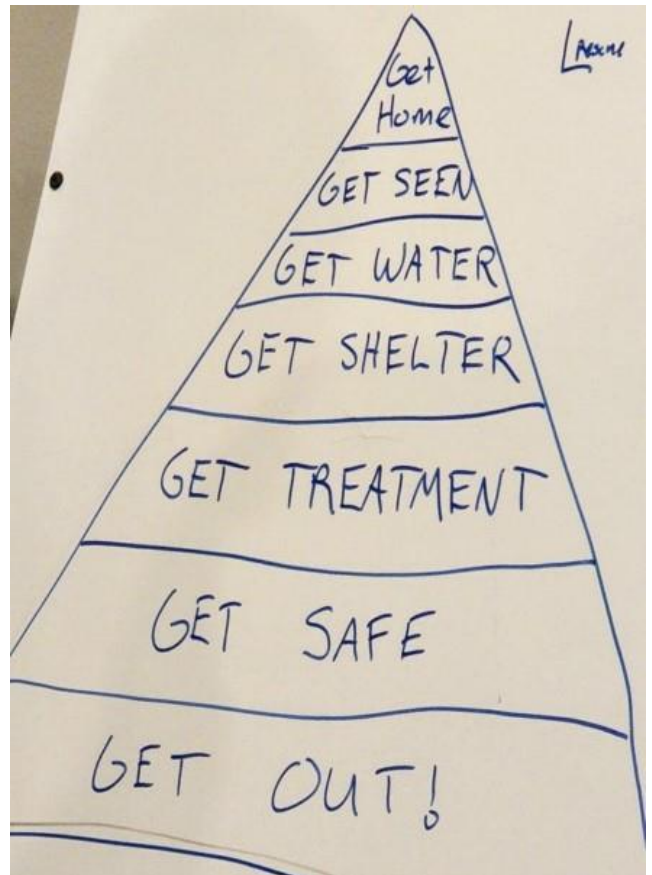 Get
Home
GET SEEN
GET WATER
GET SHELTER
GET TREATMENT
GET SAFE
GET OUT!